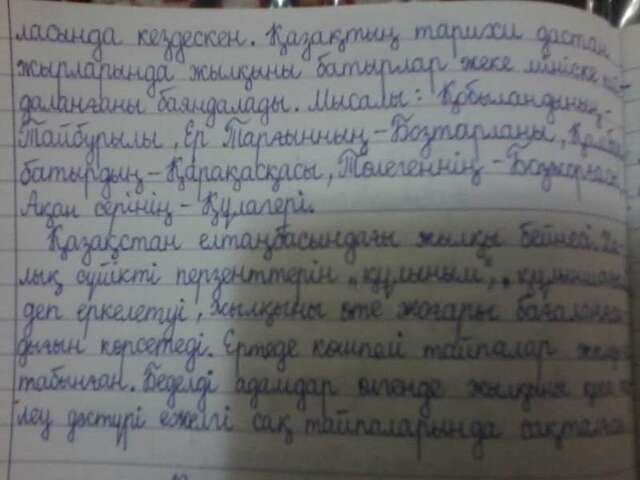 ласында кездескен. Қазақтың тарихи дастан
жырларында жылқыны батырлар жеке мініске
даланғаны баяндалады. Мысалы: Қобыландының-
Тайбурылы, Ер Тарғынның-Бозтарланы,
батырдың-Қарақасқасы, Төлегеннің -
Ақан серінің - Құлагері.
Қазақстан елтаңбасындағы жылқы бейнесі.
лық сүйікті перзенттерін „құлыным",
деп еркелетуі, жылқыны өте жоғары
дығын көрсетеді. Ертеде көшпелі тайпалар
табынған. Беделді адамдар өлгенде жылқыны
леу дәстүрі ежелгі сақ тайпаларында